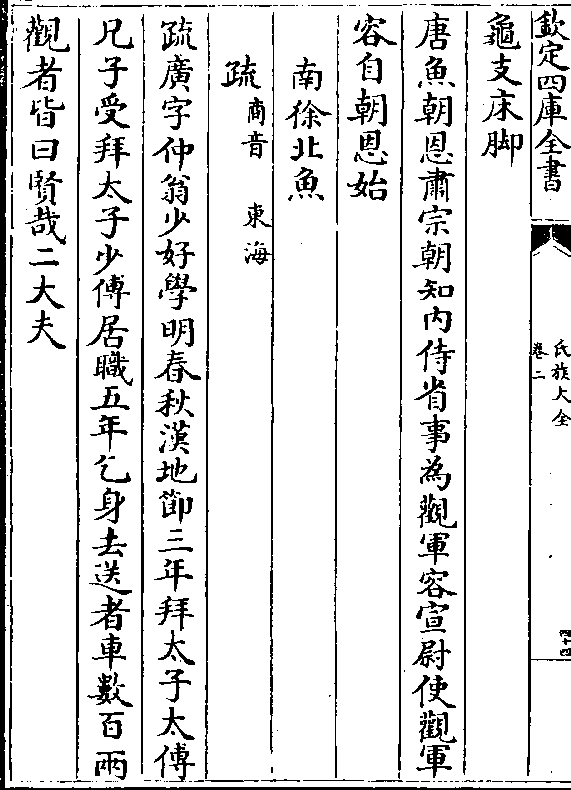 欽定四庫全書
氏族大全
卷二
四十四
龜支床脚
唐魚朝恩肅宗朝知内侍省事為觀軍容宣尉使觀軍
容自朝恩始
南徐北魚
疏 商音 東海
疏廣字仲翁少好學明春秋漢地節三年拜太子太傅
兄子受拜太子少傅居職五年乞身去送者車數百兩
觀者皆曰賢哉二大夫